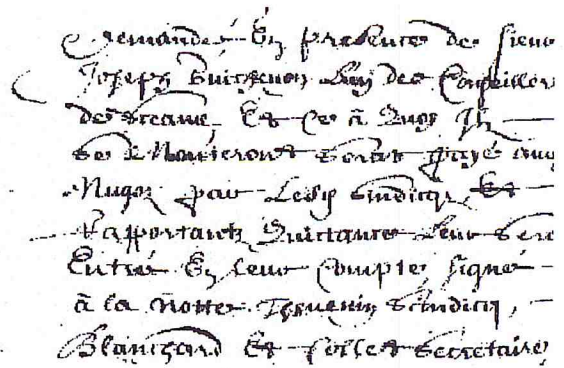 demandes En presence de sieur
Joseph Buisson Lun des Conseiller
de sceaue, Et Ce à Quoy Il
se Nourirons sera payé aux
Nugoz par Lesd Sindicqz, Et
Rapportants Quittance Leur sera
Entré En leur Compte, signé
à la notte Thevenin scindicq,
Blanchard Et Collet secretaire